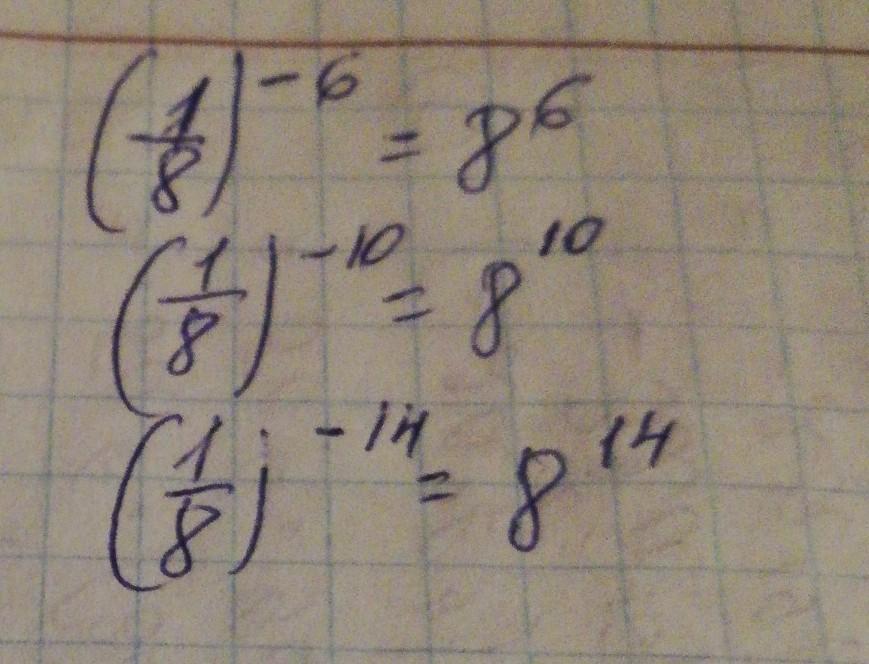 (1/8)^-6 = 8^6
(1/8)^-10 = 8^10
(1/8)^-14 = 8^14